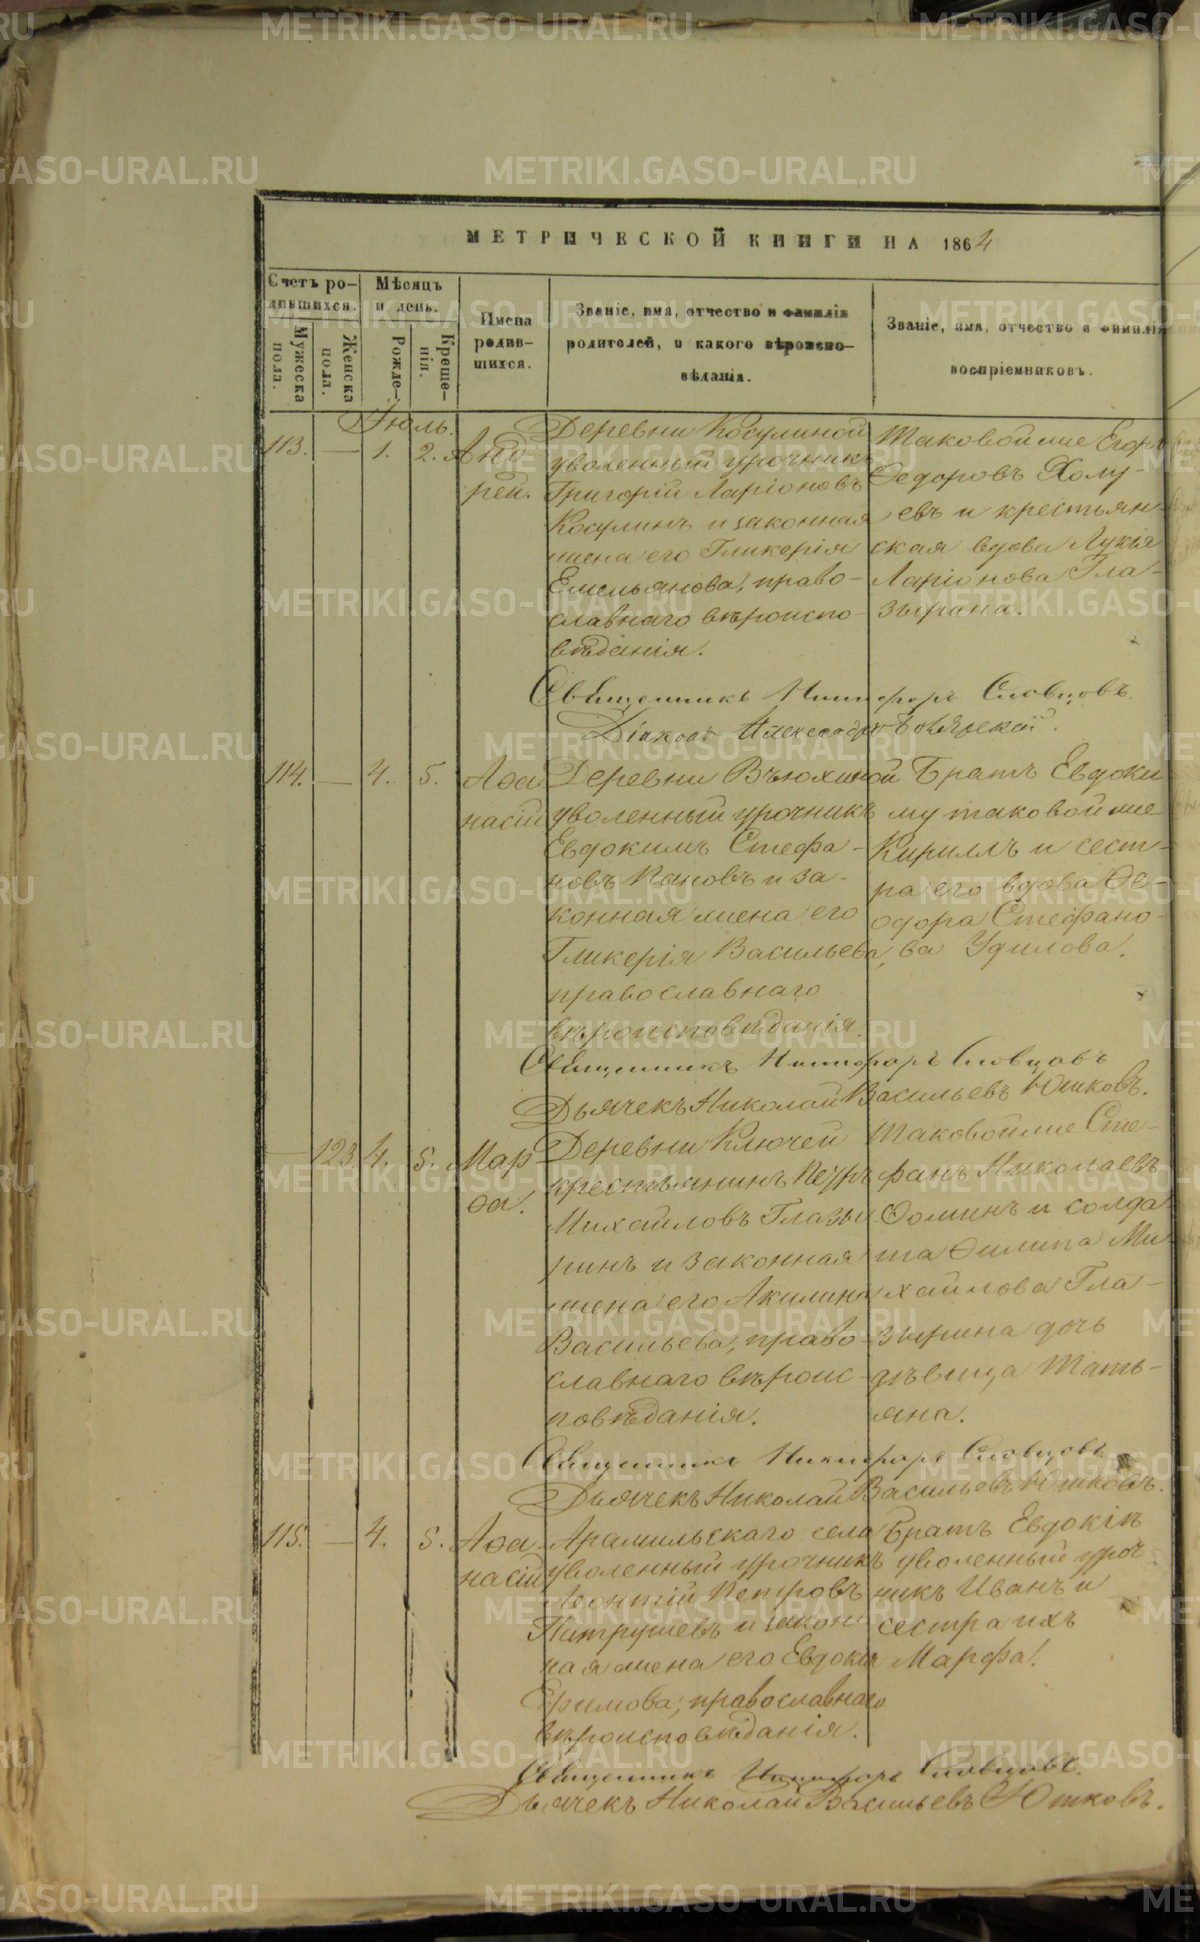 МЕТРИЧЕСКОЙ КНИГИ НА 1864
Счетъ ро-
дившихся.
Мужеска
пола.
Женска
пола.
Мѣсяцъ
и день.
Рожде-
Креще-
нія.
Имена
родив-
шихся.
Званіе, имя, отчество и фамилія
родителей, и какого вѣроиспо-
вѣданія.
Званіе, имя, отчество и фимилія
воспріемниковъ.
Іюль.
113. — 1. 2. Анд
рей.
Деревни Косулиной
уволенный урочникъ
Григорій Ларіоновъ
Косулинъ и законная
жена его Гликерія
Емельянова, право-
славнаго вѣроиспо-
вѣданія.
Таковой же Егоръ
Ѳедоровъ Холу-
евъ и крестьян-
ская вдова Лукія
Ларіонова Гла-
зырина.
Священникъ Никифоръ Словцовъ.
Діаконъ Александръ
114. — 4. 5. Аѳа
насій
Деревни Вьюхиной
уволенный урочникъ
Евдокимъ Стефа-
новъ Пановъ и за-
конная жена его
Гликерія Васильева,
православнаго
вѣроисповѣданія.
Братъ Евдоки
му таковой же
Кириллъ и сест-
ра его вдова Ѳе-
одора Стефано-
ва Удилова.
Священникъ Никифоръ Словцовъ
Дьячекъ Николай Васильевъ Юшковъ.
— 123. 4. 5. Мар
ѳа.
Деревни Ключей
крестьянинъ Петръ
Михайловъ Глазы
ринъ и законная
жена его Акилина
Васильева, право-
славнаго вѣроис-
повѣданія.
Таковой же Сте-
фанъ Николаевъ
Ѳоминъ и солда
та Ѳилипа Ми
хайлова Гла-
зырина дочь
дѣвица Тать-
яна.
Священникъ Никифоръ Словцовъ
Дьячекъ Николай Васильевъ Юшковъ.
115. — 4. 5. Аѳа
насій
Арамильскаго села
уволенный урочникъ
Леонтій Петровъ
Питрушевъ и закон
ная жена его Евдокія
Ефимова, православнаго
вѣроисповѣданія.
Братъ Евдокіѣ
уволенный уроч-
никъ Иванъ и
сестра ихъ
Марфа.
Священникъ Никифоръ Словцовъ.
Дьячекъ Николай Васильевъ Юшковъ.
METRIKI.GASO-URAL.RU